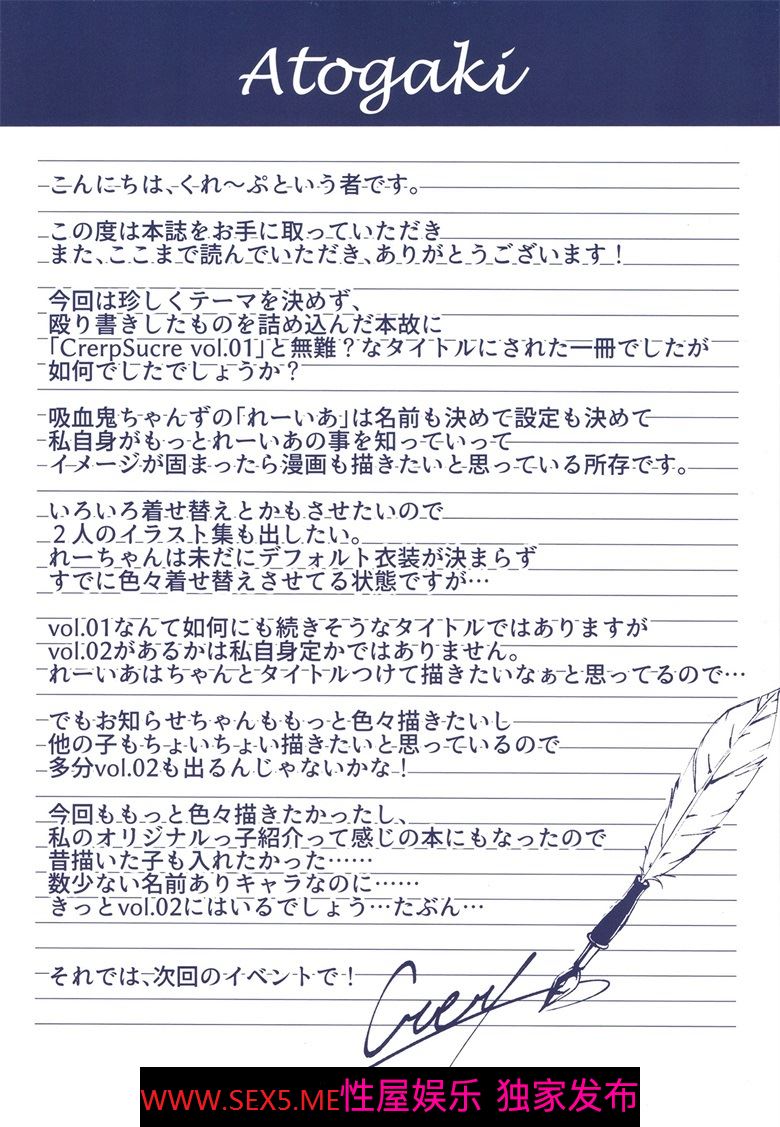 Atogaki
こんにちは、くれ～ぷという者です。
この度は本誌をお手に取っていただき
また、ここまで読んでいただき、ありがとうございます！
今回は珍しくテーマを決めず、
殴り書きしたものを詰め込んだ本故に
「CrerpSucre vol.01」と無難？なタイトルにされた一冊でしたが
如何でしたでしょうか？
吸血鬼ちゃんずの「れーいあ」は名前も決めて設定も決めて
私自身がもっとれーいあの事を知っていって
イメージが固まったら漫画も描きたいと思っている所存です。
いろいろ着せ替えとかもさせたいので
２人のイラスト集も出したい。
れーちゃんは未だにデフォルト衣装が決まらず
すでに色々着せ替えさせてる状態ですが…
vol.01なんて如何にも続きそうなタイトルではありますが
vol.02があるかは私自身定かではありません。
れーいあはちゃんとタイトルつけて描きたいなぁと思ってるので…
でもお知らせちゃんももっと色々描きたいし
他の子もちょいちょい描きたいと思っているので
多分vol.02も出るんじゃないかな！
今回ももっと色々描きたかったし、
私のオリジナルっ子紹介って感じの本にもなったので
昔描いた子も入れたかった……
数少ない名前ありキャラなのに……
きっとvol.02にはいるでしょう…たぶん…
それでは、次回のイベントで！
WWW.SEX5.ME性屋娱乐 独家发布